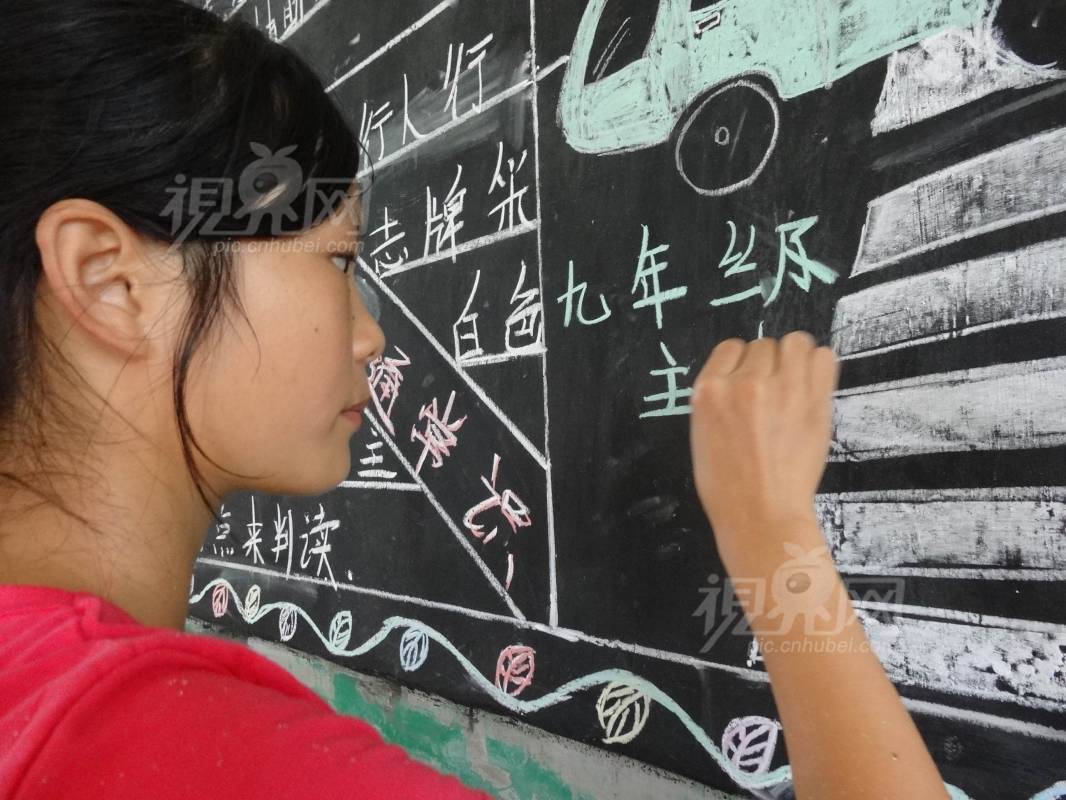 行人行
志牌采
白色
主
点来判读.
九年级
主
視界网
pic.cnhubei.com
視界网
pic.cnhubei.com